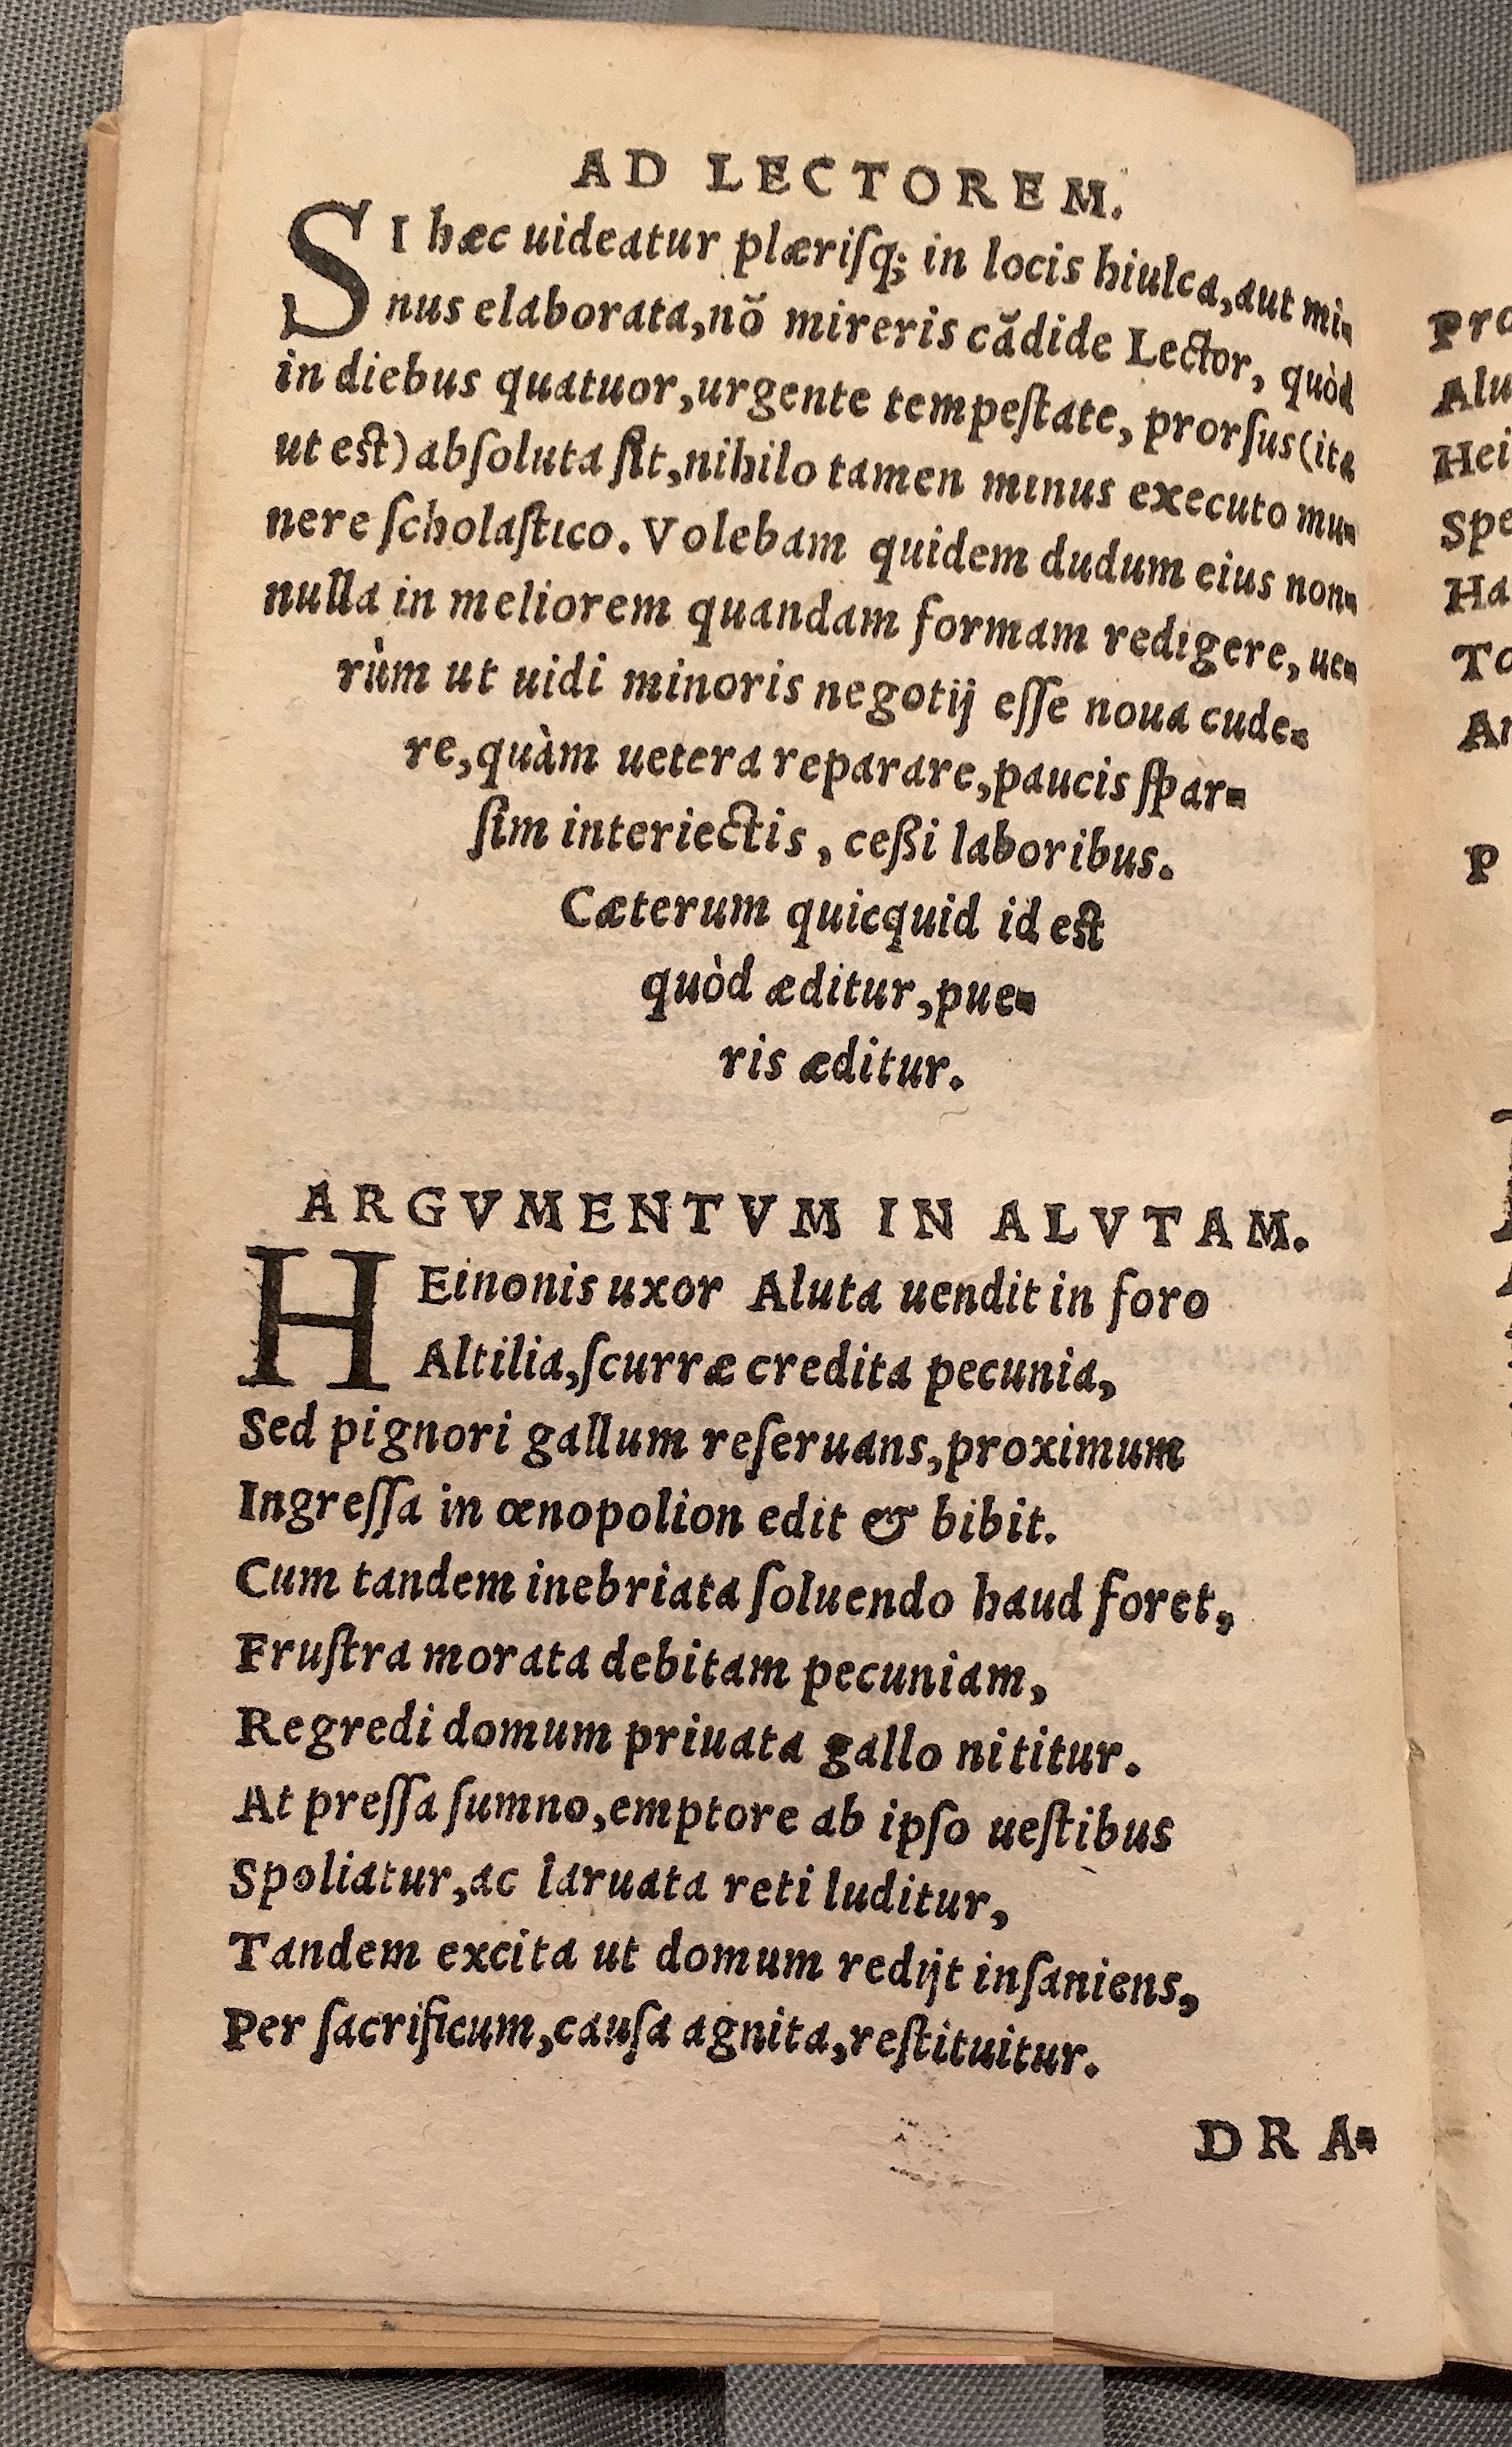 AD LECTOREM.
SI hæc uideatur plæriſq; in locis hiulca, aut mi-
nus elaborata, nõ mireris cãdide Lector, quòd
in diebus quatuor, urgente tempeſtate, prorſus (ita
ut est) abſoluta ſit, nihilo tamen minus executo mu-
nere ſcholaſtico. Volebam quidem dudum eius non-
nulla in meliorem quandam formam redigere, ue-
rùm ut uidi minoris negotij eſſe noua cude-
re, quàm uetera reparare, paucis ſpar-
ſim interiectis, ceßi laboribus.
Cæterum quicquid id est
quòd æditur, pue-
ris æditur.
ARGVMENTVM IN ALVTAM.
HEinonis uxor Aluta uendit in foro
Altilia, ſcurræ credita pecunia,
Sed pignori gallum reſeruans, proximum
Ingreſſa in œnopolion edit & bibit.
Cum tandem inebriata ſoluendo haud foret,
Fruſtra morata debitam pecuniam,
Regredi domum priuata gallo nititur.
At preſſa ſumno, emptore ab ipſo ueſtibus
Spoliatur, ac laruata reti luditur,
Tandem excita ut domum redijt inſaniens,
Per ſacrificum, cauſa agnita, reſtituitur.
DRA-
Pro
Alu
Hei
Spe
Ha
To
An
P